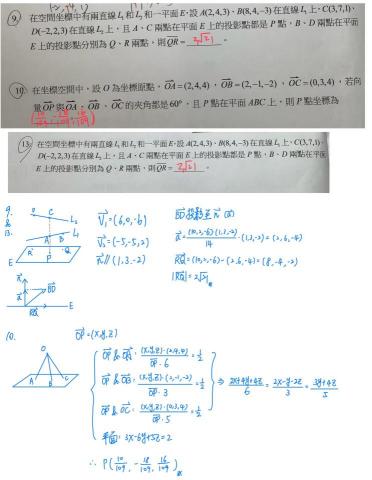 9. 在空間坐標中有兩直線 L₁ 和 L₂ 和一平面 E，設 A(2,4,3)、B(8,4,-3) 在直線 L₁ 上，C(3,7,1)、
D(-2,2,3) 在直線 L₂ 上，且 A、C 兩點在平面 E 上的投影點都是 P 點，B、D 兩點在平面
E 上的投影點分別為 Q、R 兩點，則 QR = 2√21 。
10. 在坐標空間中，設 O 為坐標原點，OA=(2,4,4)，OB=(2,-1,-2)，OC=(0,3,4)，若向
量 OP 與 OA、OB、OC 的夾角都是 60°，且 P 點在平面 ABC 上，則 P 點坐標為
(10/109, -18/109, 16/109)
13. 在空間坐標中有兩直線 L₁ 和 L₂ 和一平面 E，設 A(2,4,3)、B(8,4,-3) 在直線 L₁ 上，C(3,7,1)、
D(-2,2,3) 在直線 L₂ 上，且 A、C 兩點在平面 E 上的投影點都是 P 點，B、D 兩點在平面
E 上的投影點分別為 Q、R 兩點，則 QR = 2√21 。
9.
&
13.
C
L₂
A
B
L₁
R
Q
E
P
V₁=(6,0,-6)
V₂=(-5,-5,2)
n // (1,3,-2)
BD
RQ
E
|RQ|=2√21
10.
OP=(x,y,z)
O
A
B
C
OP & OA: (x,y,z)·(2,4,4) / OP·6 = 1/2
OP & OB: (x,y,z)·(2,-1,-2) / OP·3 = 1/2
OP & OC: (x,y,z)·(0,3,4) / OP·5 = 1/2
⇒ 2x+4y+4z / 6 = 2x-y-2z / 3 = 3y+4z / 5
平面: 3x-6y+5z=2
∴ P(10/109, -18/109, 16/109)